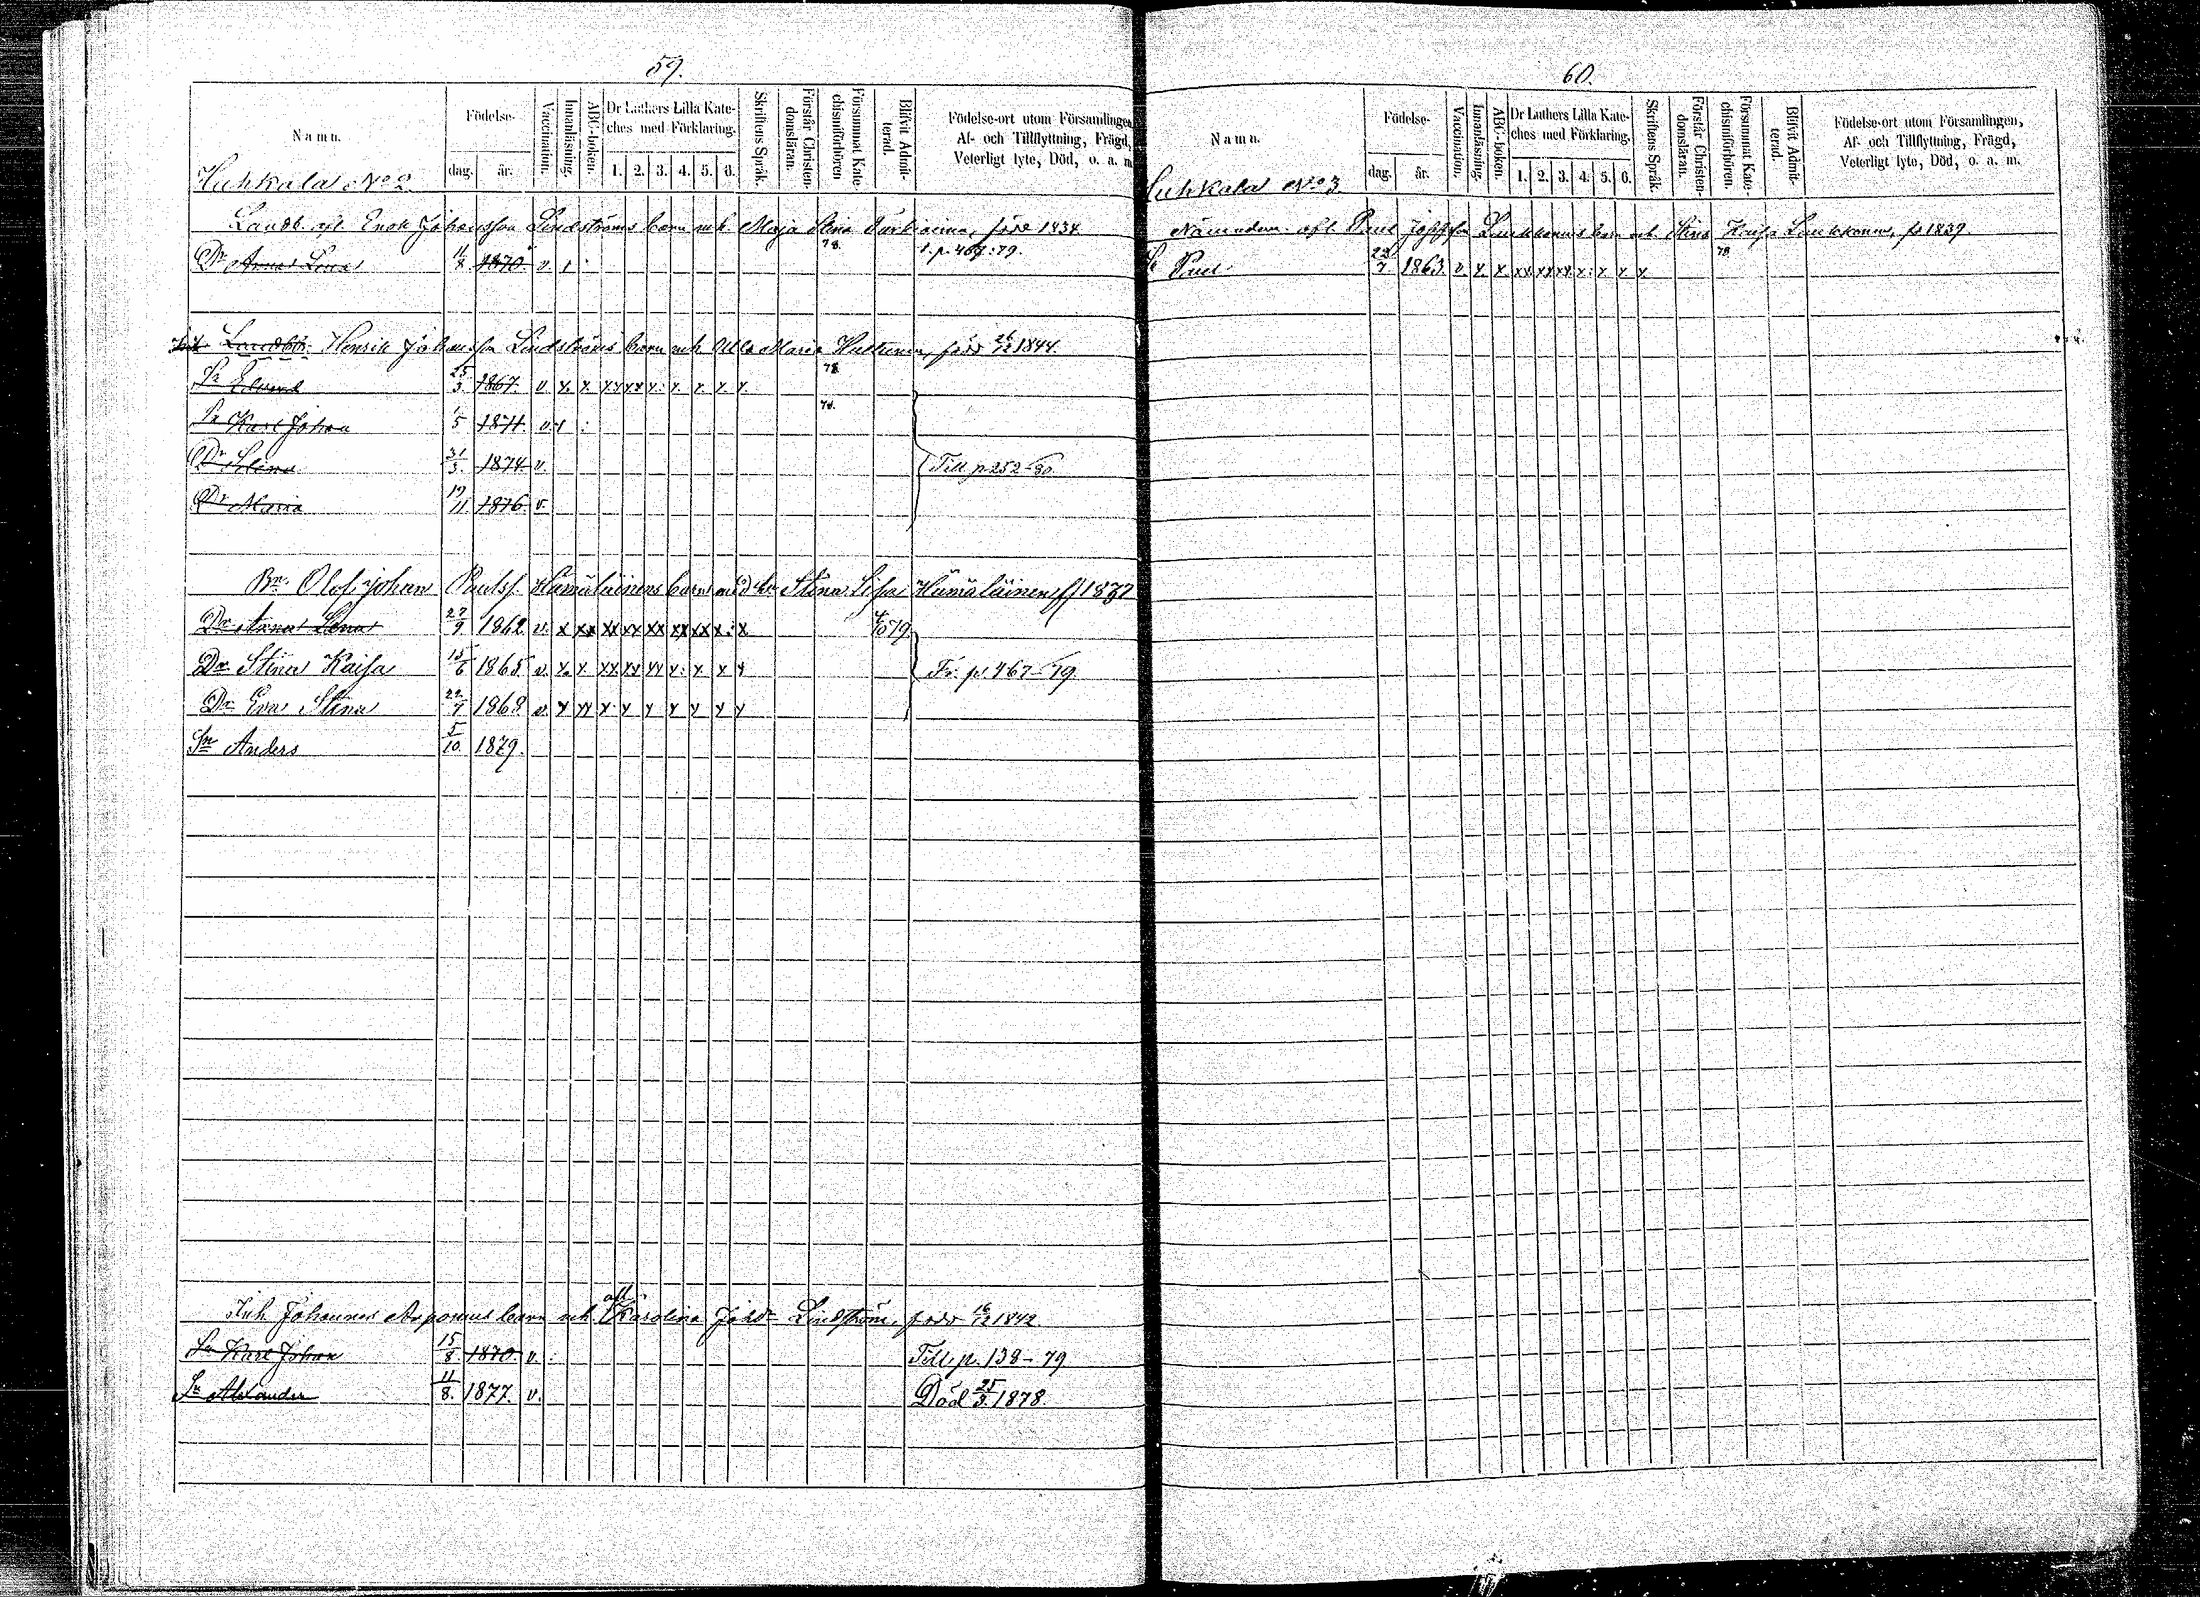 59.
Namn.
Födelse-
dag.
år.
Vaccination.
Innanläsning.
ABC-boken.
Dr Luthers Lilla Kate-
ches med Förklaring.
1. 2. 3. 4. 5. 6.
Skriftens Språk.
Förstår Christen-
domsläran.
Försummat Kate-
chismiförhören
Blifvit Admit-
terad.
Födelse-ort utom Församlingen,
Af- och Tillflyttning, Frägd,
Veterligt lyte, Död, o. a. m.
Huhkala No 2.
Landb. Enok Johansson Lindströms barn m.h. Maja Stina före 1834
78.
Dr Anna Lena 11/8 1870 v. t. p. 464:79.
Landb. Henrik Johansson Lindströms barn m.h. Ulla Maria Hultunen, född 26/12 1844.
78.
Sn Edvard 25/3 1867. v x. x. xx xx x: x. x. x. x.
78.
Sn Karl Johan 1/5 1871. v.
Dr Helena 31/3. 1874. v. Till p 252-80.
Dr Maria 19/11 1876. v.
Br. Olof Johan Paulsf. Hämäläinens barn med Stina Lisa Hämäläinen f/1837
Dr Anna Lena 27/9 1862 v. x xx xx xx xx xx xx x: x 4/10 79
Dr Stina Kaisa 15/6 1865 v. x. x. xx xx xx x: x. x x Fr. p. 467-79.
Dr Eva Stina 22/7 1868 v. x xx x x x x x x x
Sn Anders 5/10. 1879.
Inh. Johannes Arponens barn m.h. Karolina Johdr Lindström, född 16/12 1842.
Sn Karl Johan 15/8. 1870. v. : Till. p. 138-79
Sn Alexander 11/8. 1877. v. Död 25/3. 1878.
60.
Namn.
Födelse-
dag.
år.
Vaccination.
Innanläsning.
ABC-boken.
Dr Luthers Lilla Kate-
ches med Förklaring.
1. 2. 3. 4. 5. 6.
Skriftens Språk.
Förstår Christen-
domsläran.
Försummat Kate-
chismiförhören.
Blifvit Admit-
terad.
Födelse-ort utom Församlingen,
Af- och Tillflyttning, Frägd,
Veterligt lyte, Död, o. a. m.
Huhkala No 3
Nämndem. afl. Paul Laukkanens barn m.h. Stina Kaisa Laukkonen, fr 1839
78.
Sn Paul 22/7 1863. v. x x xx xx xx x: x x x